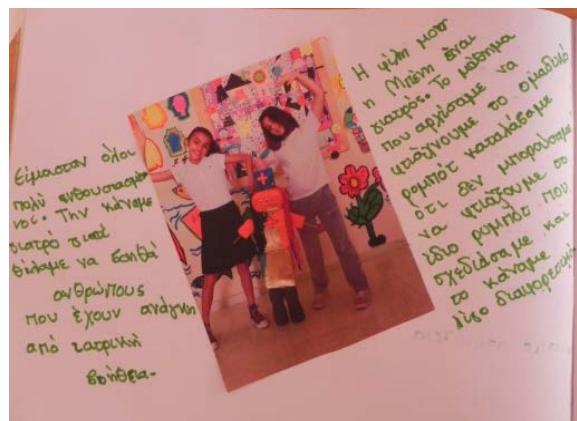 Είμασταν όλοι
πολύ ενθουσιασμέ
νος. Την κάναμε
γιατρό γιατί
θέλαμε να βοηθά
ανθρώπους
που έχουν ανάγκη
από ιατρική
βοήθεια.
Η φίλη μου
η Μπένη είναι
γιατρός. Το μάθημα
που αρχίσαμε να
φτιάχνουμε το ομαδικό
ρομπότ καταλάβαμε
ότι δεν μπορούσαμε
να φτιάξουμε το
ίδιο ρομπότ που
σχεδιάσαμε και
το κάναμε
λίγο διαφορετικό